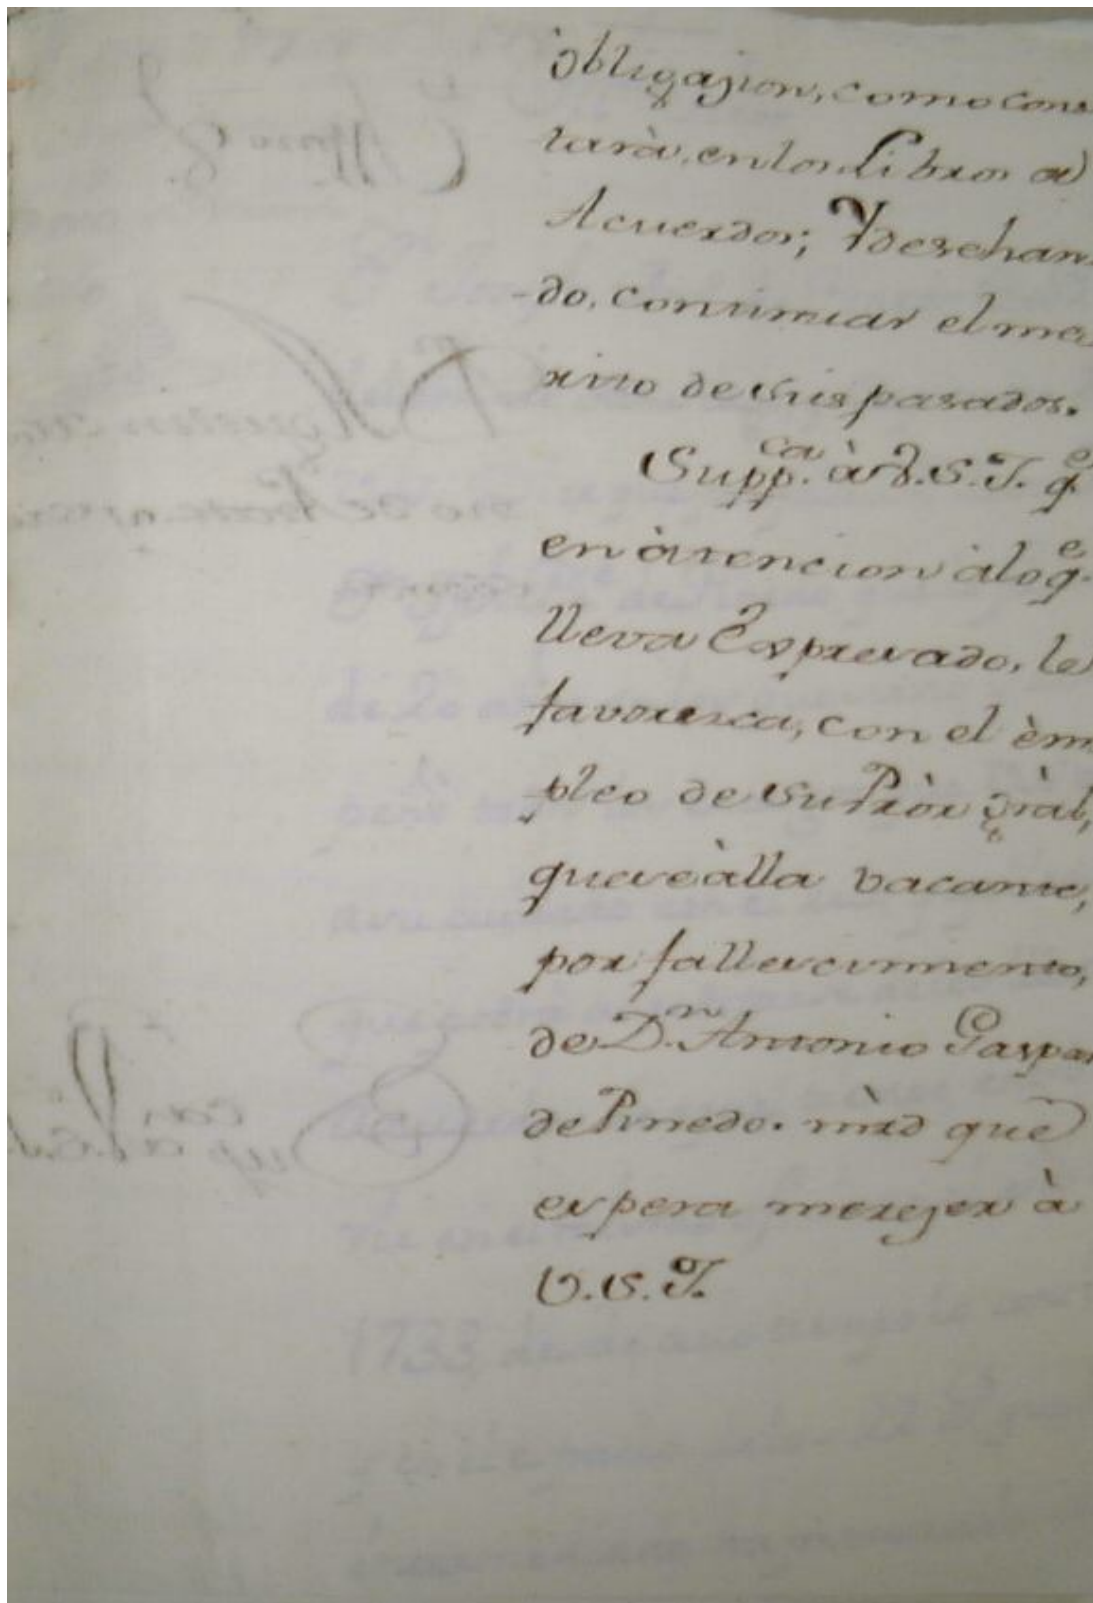 obligazion, como cons
tarà, en los Libros de
Acuerdos; Y desehan
-do, continuar el me
rito de sus pasados.
Supp.ca à V.S.I. q.e
en àtencion àlo q.e
lleva Expresado, le
favoresca, con el èm
pleo de su Pròr gràl,
que se àlla vacante,
por fallecimiento,
de D.n Antonio Gaspar
de Pinedo. mrd que
espera merezer à
V.S.I.